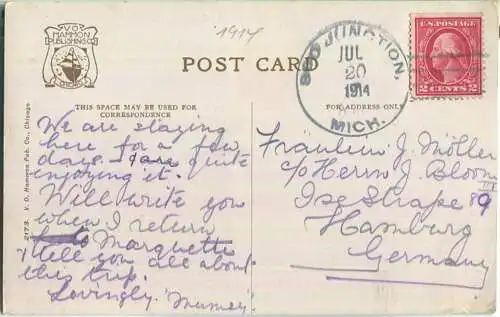 V.O.
HAMMON
PUBLISHING CO.
CHICAGO
1914
POST CARD
JUNCTION.
JUL
20
1914
MICH.
U.S. POSTAGE
2 CENTS 2
THIS SPACE MAY BE USED FOR
CORRESPONDENCE
FOR ADDRESS ONLY
2173. V. O. Hammon Pub. Co., Chicago.
We are staying
here for a few
days. I am quite
enjoying it.
Will write you
when I return
to Marquette
& tell you all about
this trip.
Lovingly
Fräulein J. Möller
c/o Herrn J. Bloom
Isestraße 89 III
Hamburg
Germany